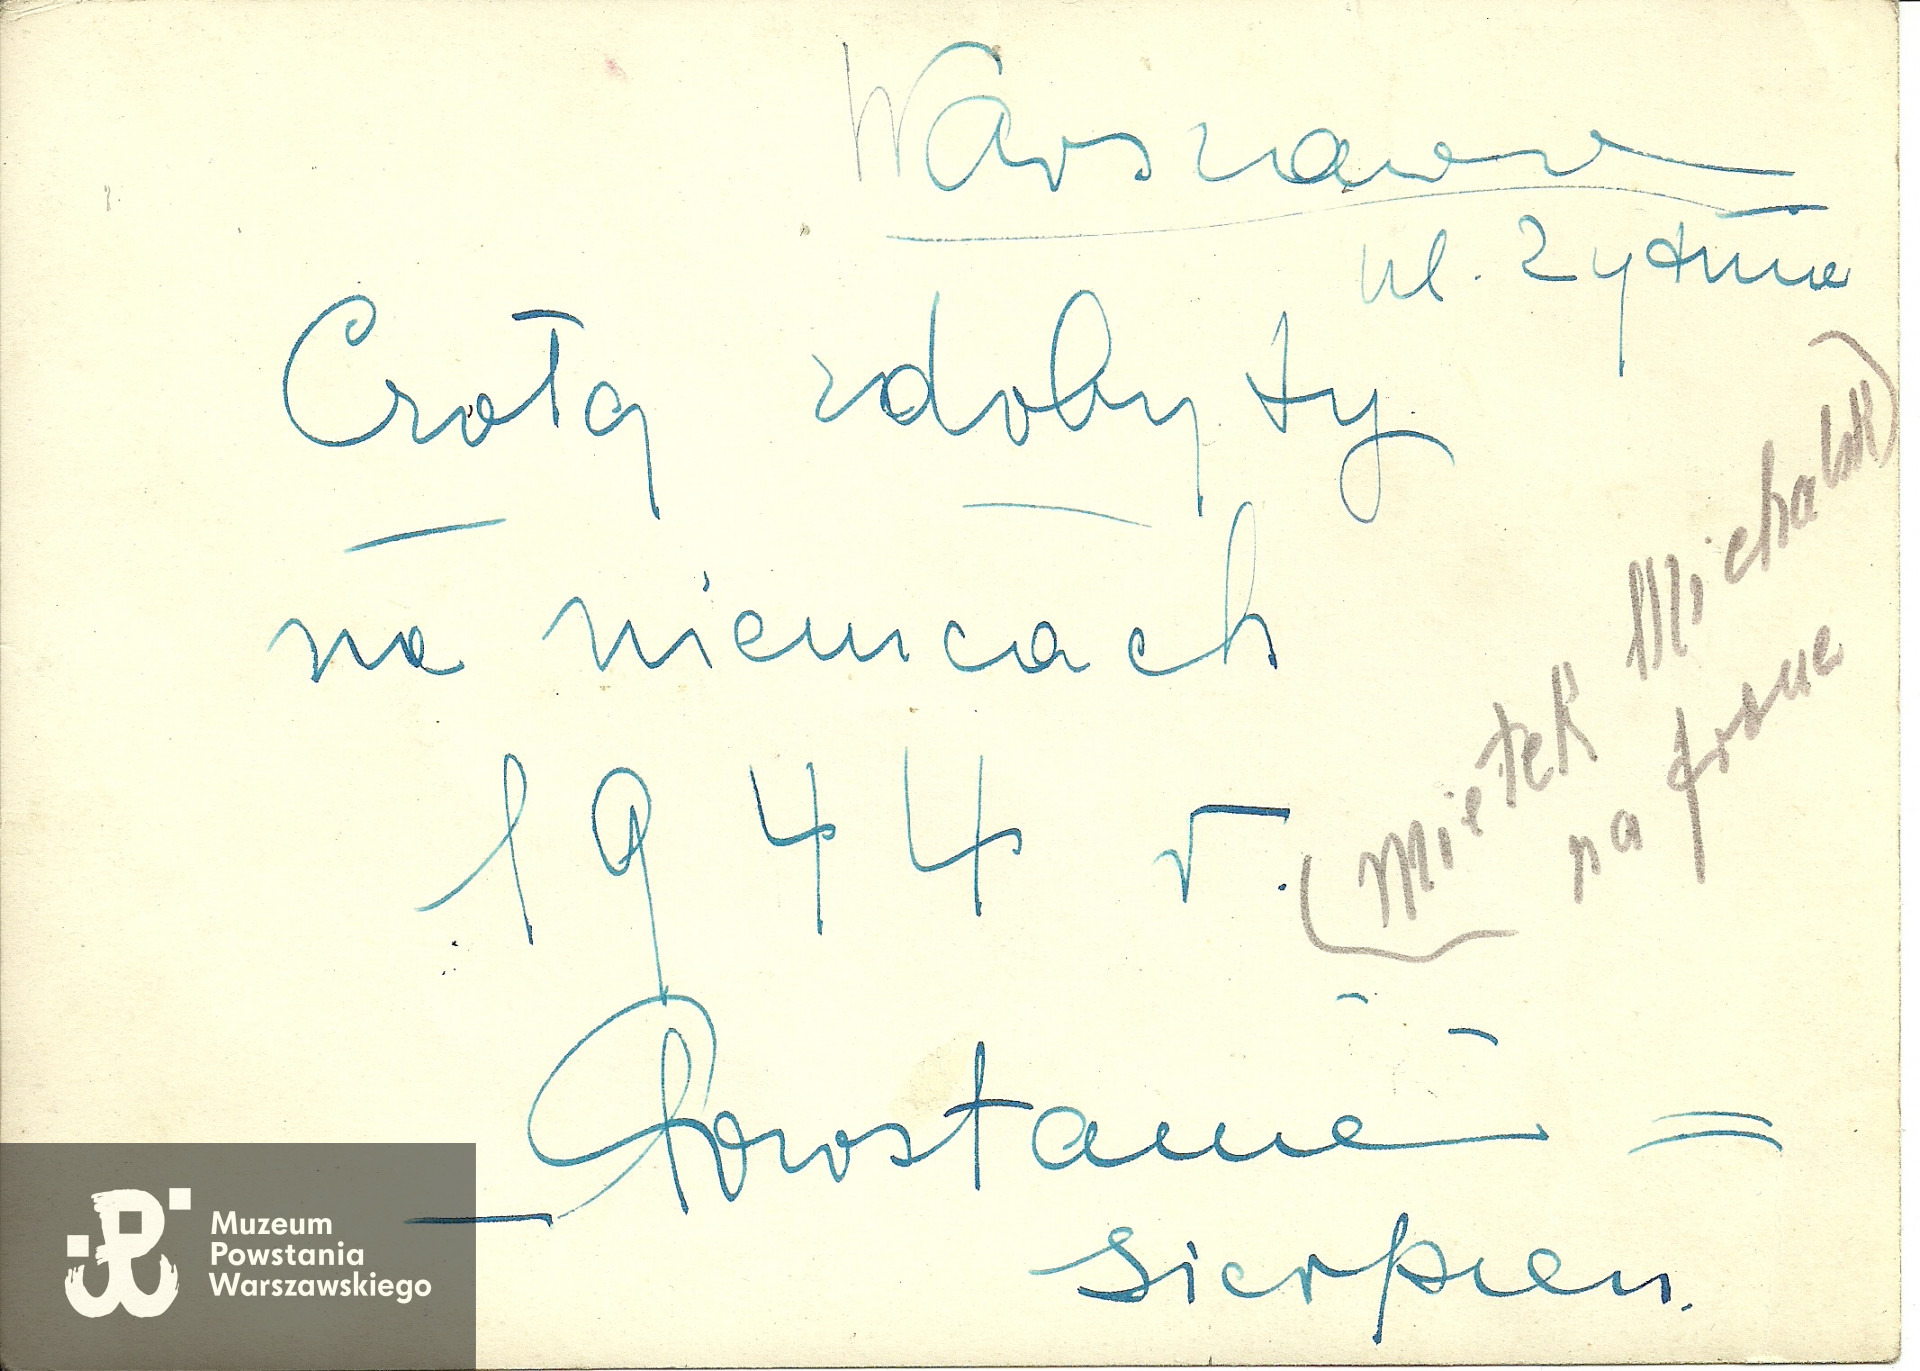 Warszawa
ul. Żytnia
Czołg zdobyty
na niemcach
1944 r.
(Mietek Michalski)
na
Powstanie =
Sierpień.
Muzeum
Powstania
Warszawskiego